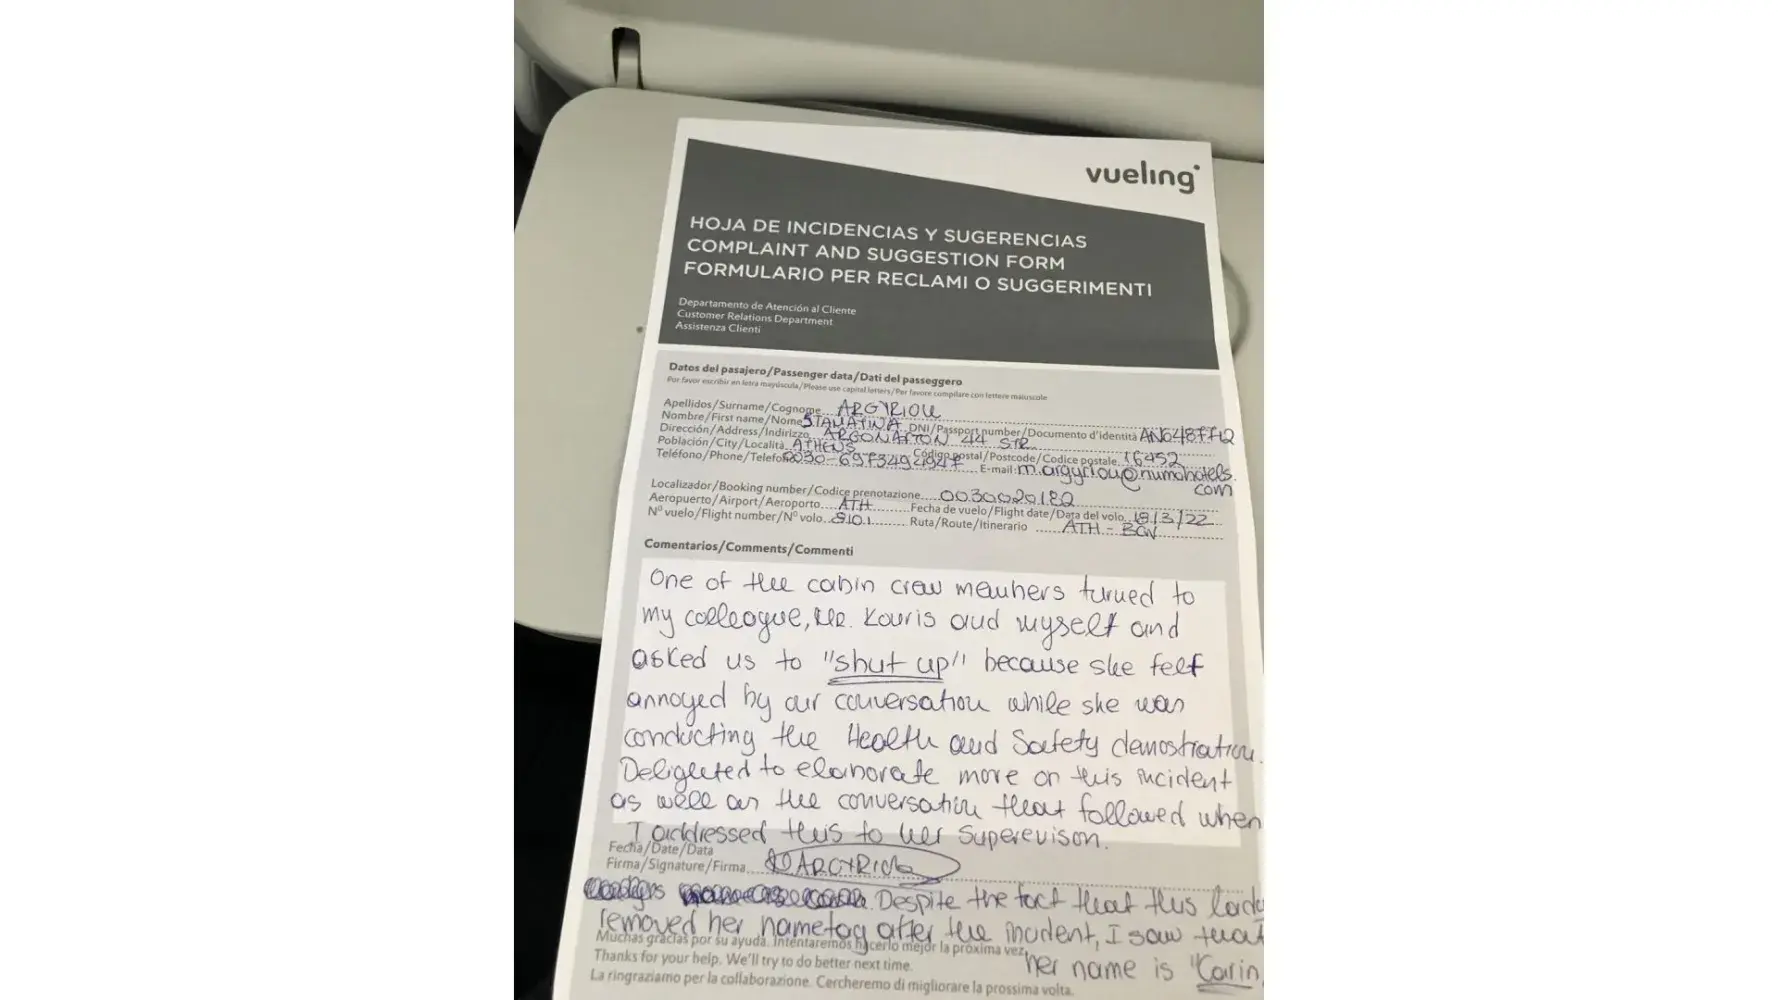 vueling
HOJA DE INCIDENCIAS Y SUGERENCIAS
COMPLAINT AND SUGGESTION FORM
FORMULARIO PER RECLAMI O SUGGERIMENTI
Departamento de Atención al Cliente
Customer Relations Department
Assistenza Clienti
Datos del pasajero/Passenger data/Dati del passeggero
Por favor escribir en letra mayúscula/Please use capital letters/Per favore compilare con lettere maiuscole
Apellidos/Surname/Cognome ARGYRIOU
Nombre/First name/Nome STAMATINA DNI/Passport number/Documento d'identità AN648772
Dirección/Address/Indirizzo ARGONAFTON 44 STR
Población/City/Località ATHENS Código postal/Postcode/Codice postale 16452
Teléfono/Phone/Telefono 0030-6973494947 E-mail: m.argyriou@numohotels.
com
Localizador/Booking number/Codice prenotazione 0030020182
Aeropuerto/Airport/Aeroporto ATH Fecha de vuelo/Flight date/Data del volo 18/3/22
Nº vuelo/Flight number/Nº volo 8101 Ruta/Route/Itinerario ATH - BCN
Comentarios/Comments/Commenti
One of the cabin crew members turned to
my colleague, Mr. Kouris and myself and
asked us to "shut up" because she felt
annoyed by our conversation while she was
conducting the Health and Safety demostration.
Delighted to elaborate more on this incident
as well as the conversation that followed when
I addressed this to her superevison.
Fecha/Date/Data
Firma/Signature/Firma ARGYRIOU
Despite the fact that this lady
removed her nametag after the incident, I saw that
Muchas gracias por su ayuda. Intentaremos hacerlo mejor la próxima vez.
her name is "Carin
Thanks for your help. We'll try to do better next time.
La ringraziamo per la collaborazione. Cercheremo di migliorare la prossima volta.